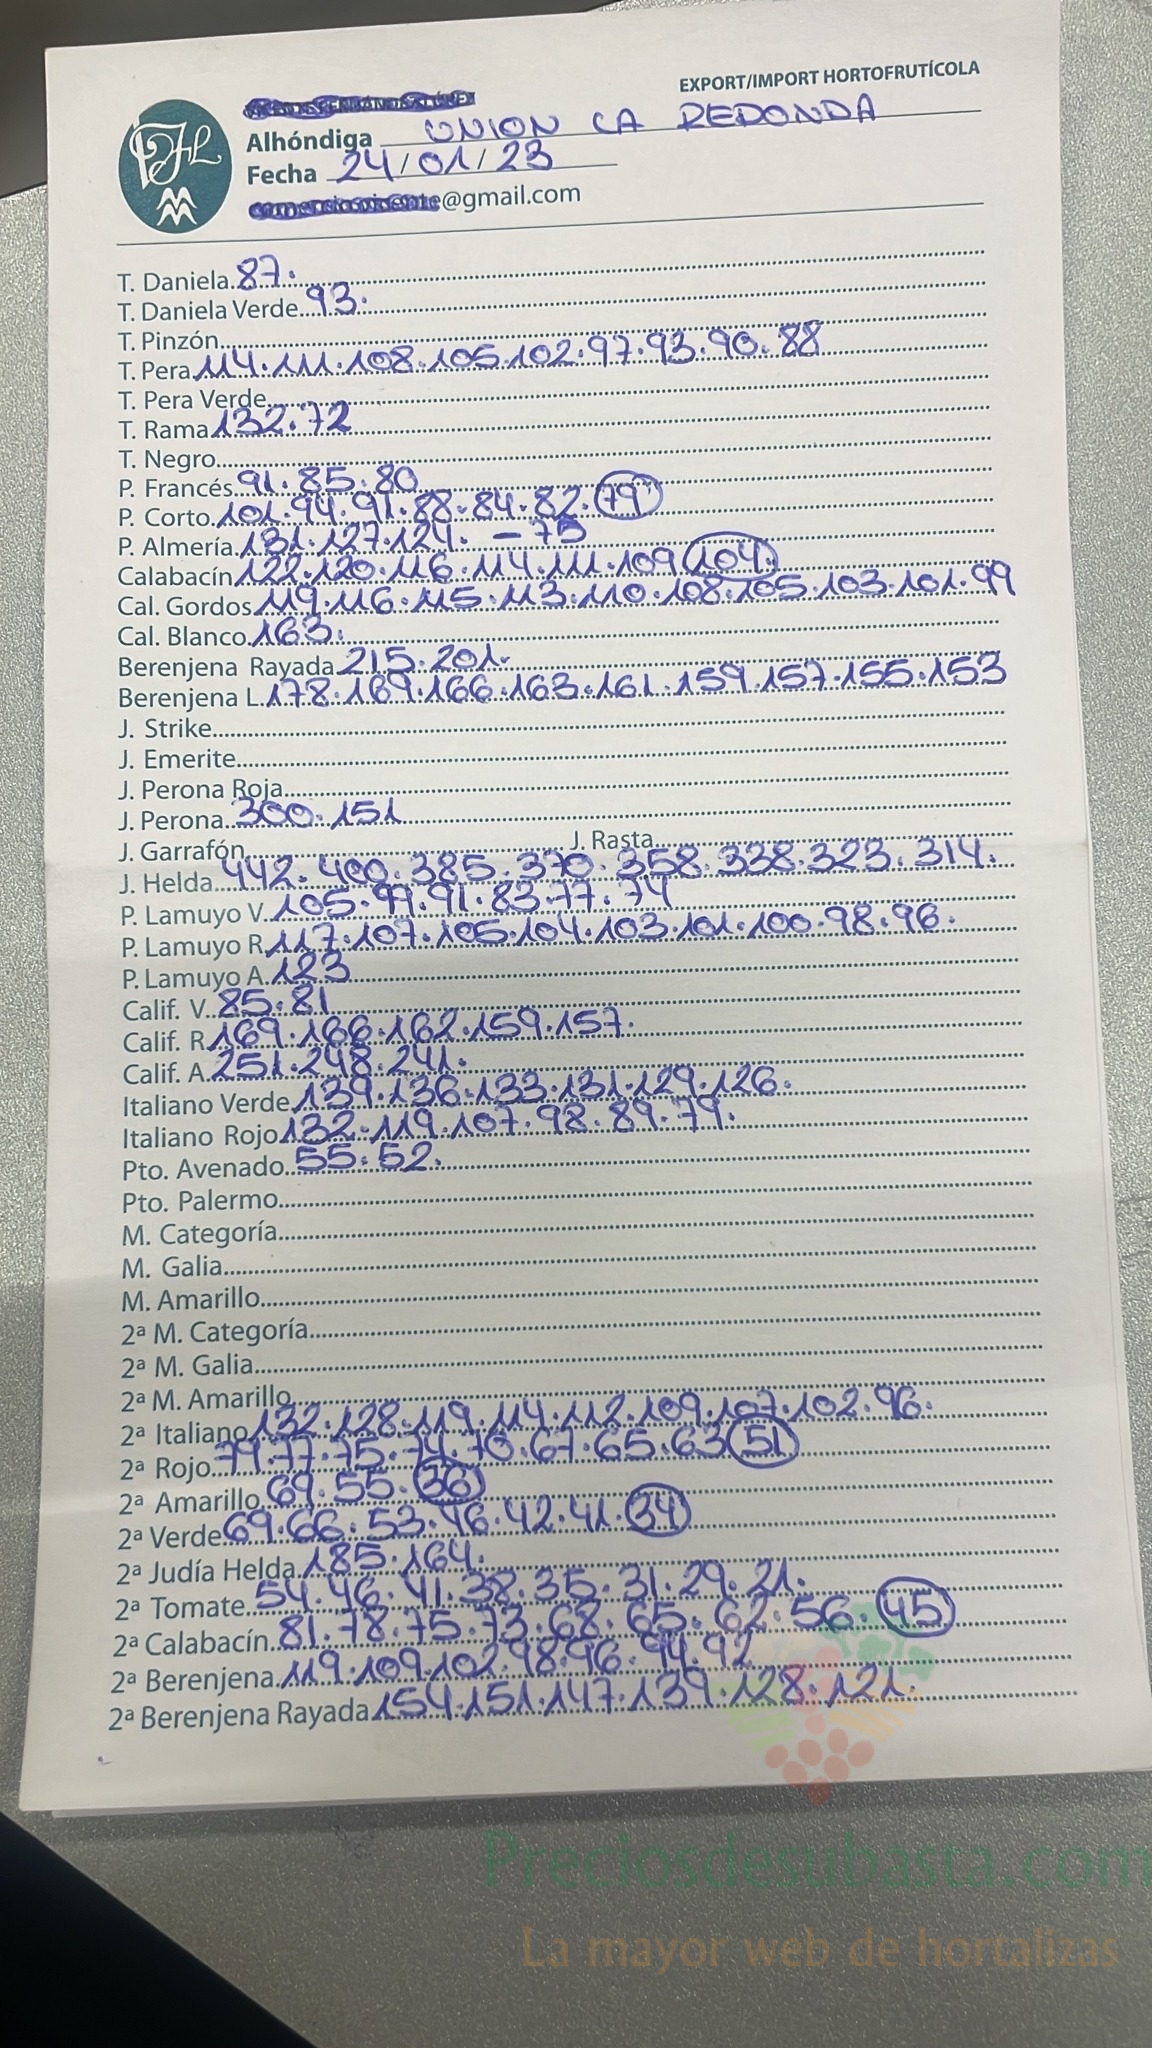 EXPORT/IMPORT HORTOFRUTÍCOLA
Alhóndiga UNION LA REDONDA
Fecha 24/01/23
@gmail.com
T. Daniela 87.
T. Daniela Verde 93.
T. Pinzón
T. Pera 114.111.108.105.102.97.93.90.88
T. Pera Verde
T. Rama 132.72
T. Negro
P. Francés 91.85.80
P. Corto 101.94.91.88.84.82.79
P. Almería 131.127.124. - 75
Calabacín 122.120.116.114.111.109 104.
Cal. Gordos 119.116.115.113.110.108.105.103.101.99
Cal. Blanco 163.
Berenjena Rayada 215.201.
Berenjena L. 178.169.166.163.161.159.157.155.153
J. Strike
J. Emerite
J. Perona Roja
J. Perona 300.151
J. Garrafón J. Rasta
J. Helda 442.400.385.370.358.338.323.314.
P. Lamuyo V. 105.99.91.83.77.74
P. Lamuyo R. 117.107.105.104.103.101.100.98.96.
P. Lamuyo A. 123
Calif. V. 85.81
Calif. R. 169.166.162.159.157.
Calif. A. 251.248.241.
Italiano Verde 139.136.133.131.129.126.
Italiano Rojo 132.119.107.98.89.79.
Pto. Avenado 55.52.
Pto. Palermo
M. Categoría
M. Galia
M. Amarillo
2ª M. Categoría
2ª M. Galia
2ª M. Amarillo
2ª Italiano 132.128.119.114.112.109.107.102.96.
2ª Rojo 79.77.75.74.70.67.65.63 51
2ª Amarillo 69.55.36
2ª Verde 69.66.53.46.42.41.34
2ª Judía Helda 185.164.
2ª Tomate 54.46.41.38.35.31.29.21.
2ª Calabacín 81.78.75.73.68.65.62.56.45
2ª Berenjena 119.109.102.98.96.94.92
2ª Berenjena Rayada 154.151.147.139.128.121.
Preciosdesubasta.com
La mayor web de hortalizas